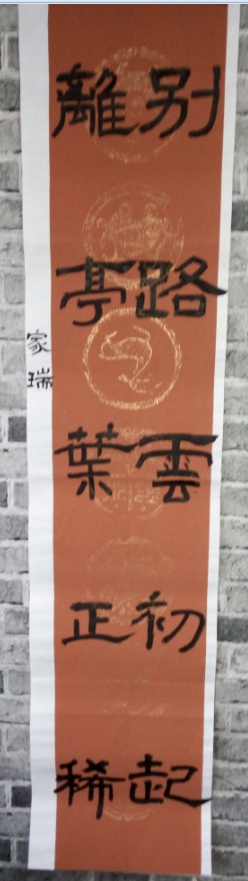 别路雲初起
離亭葉正稀
家瑞